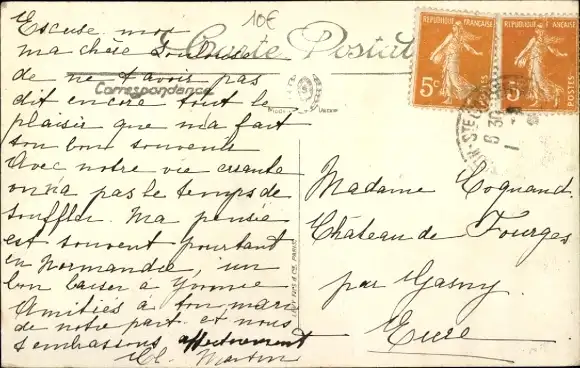 10€
Carte Postale
Correspondance
Excuse moi
ma chère
de ne t'avoir pas
dit encore tout le
plaisir que m'a fait
ton bon souvenir
Avec notre vie errante
on n'a pas le temps de
souffler. Ma pensée
est souvent pourtant
en Normandie, un
bon baiser à Yvonne
Amitiés à ton mari
de notre part et nous
t'embrassons affectueusement
Martin
REPUBLIQUE FRANÇAISE
5c
POSTES
REPUBLIQUE FRANÇAISE
5c
POSTES
6 30
Madame Coquand
Château de Fourges
par Gasny.
Eure